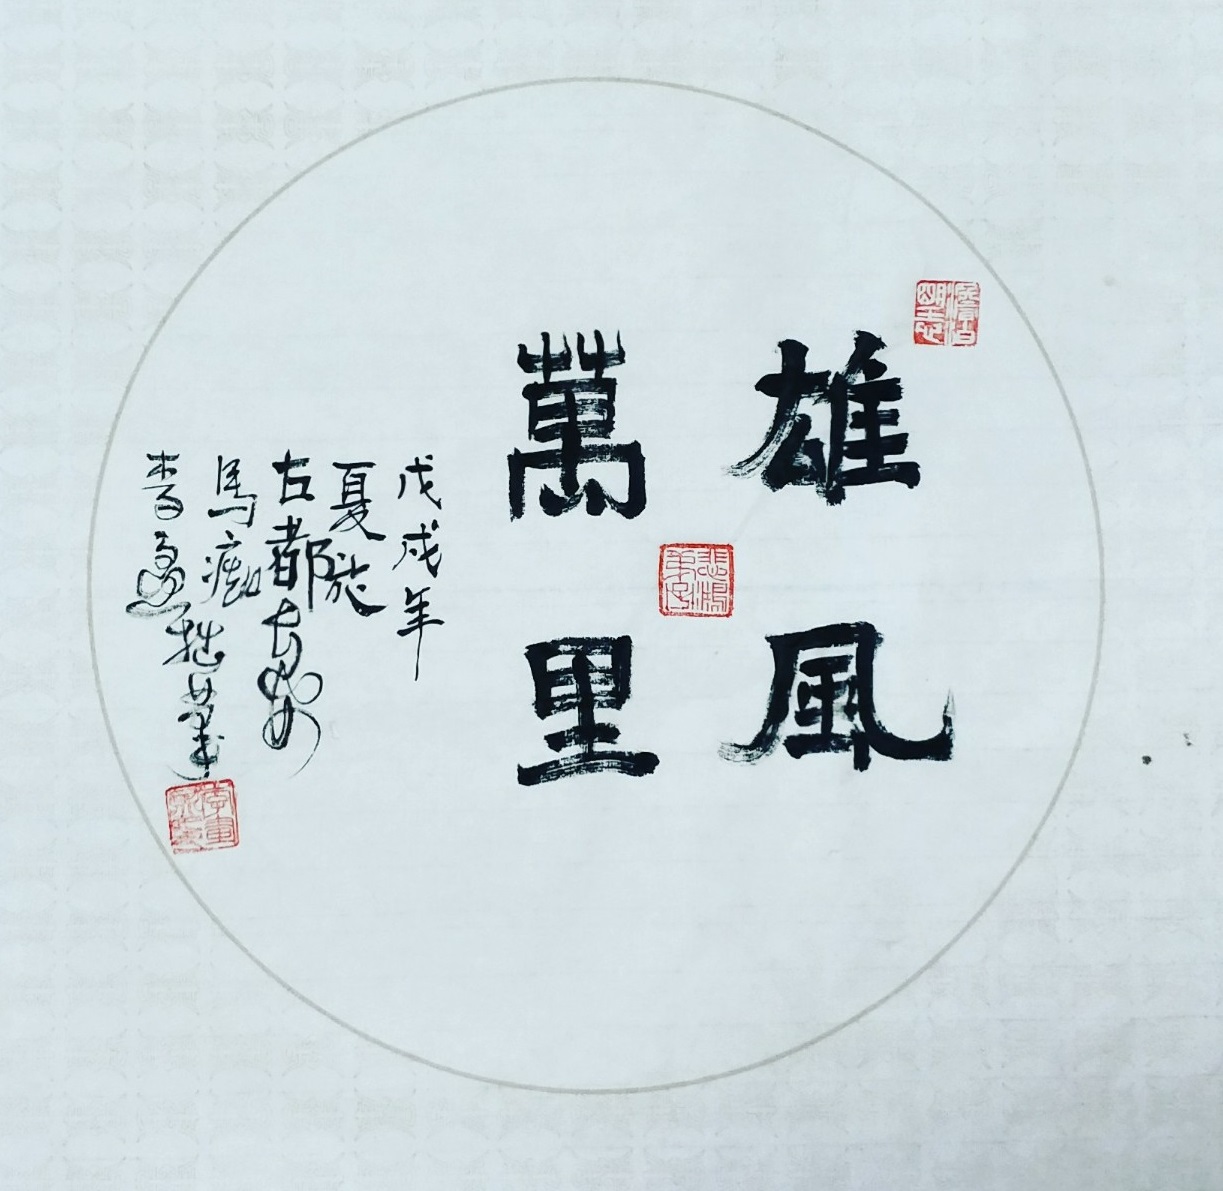 雄風
萬里
戊戌年
夏於
古都長安
馬痴拙筆
李